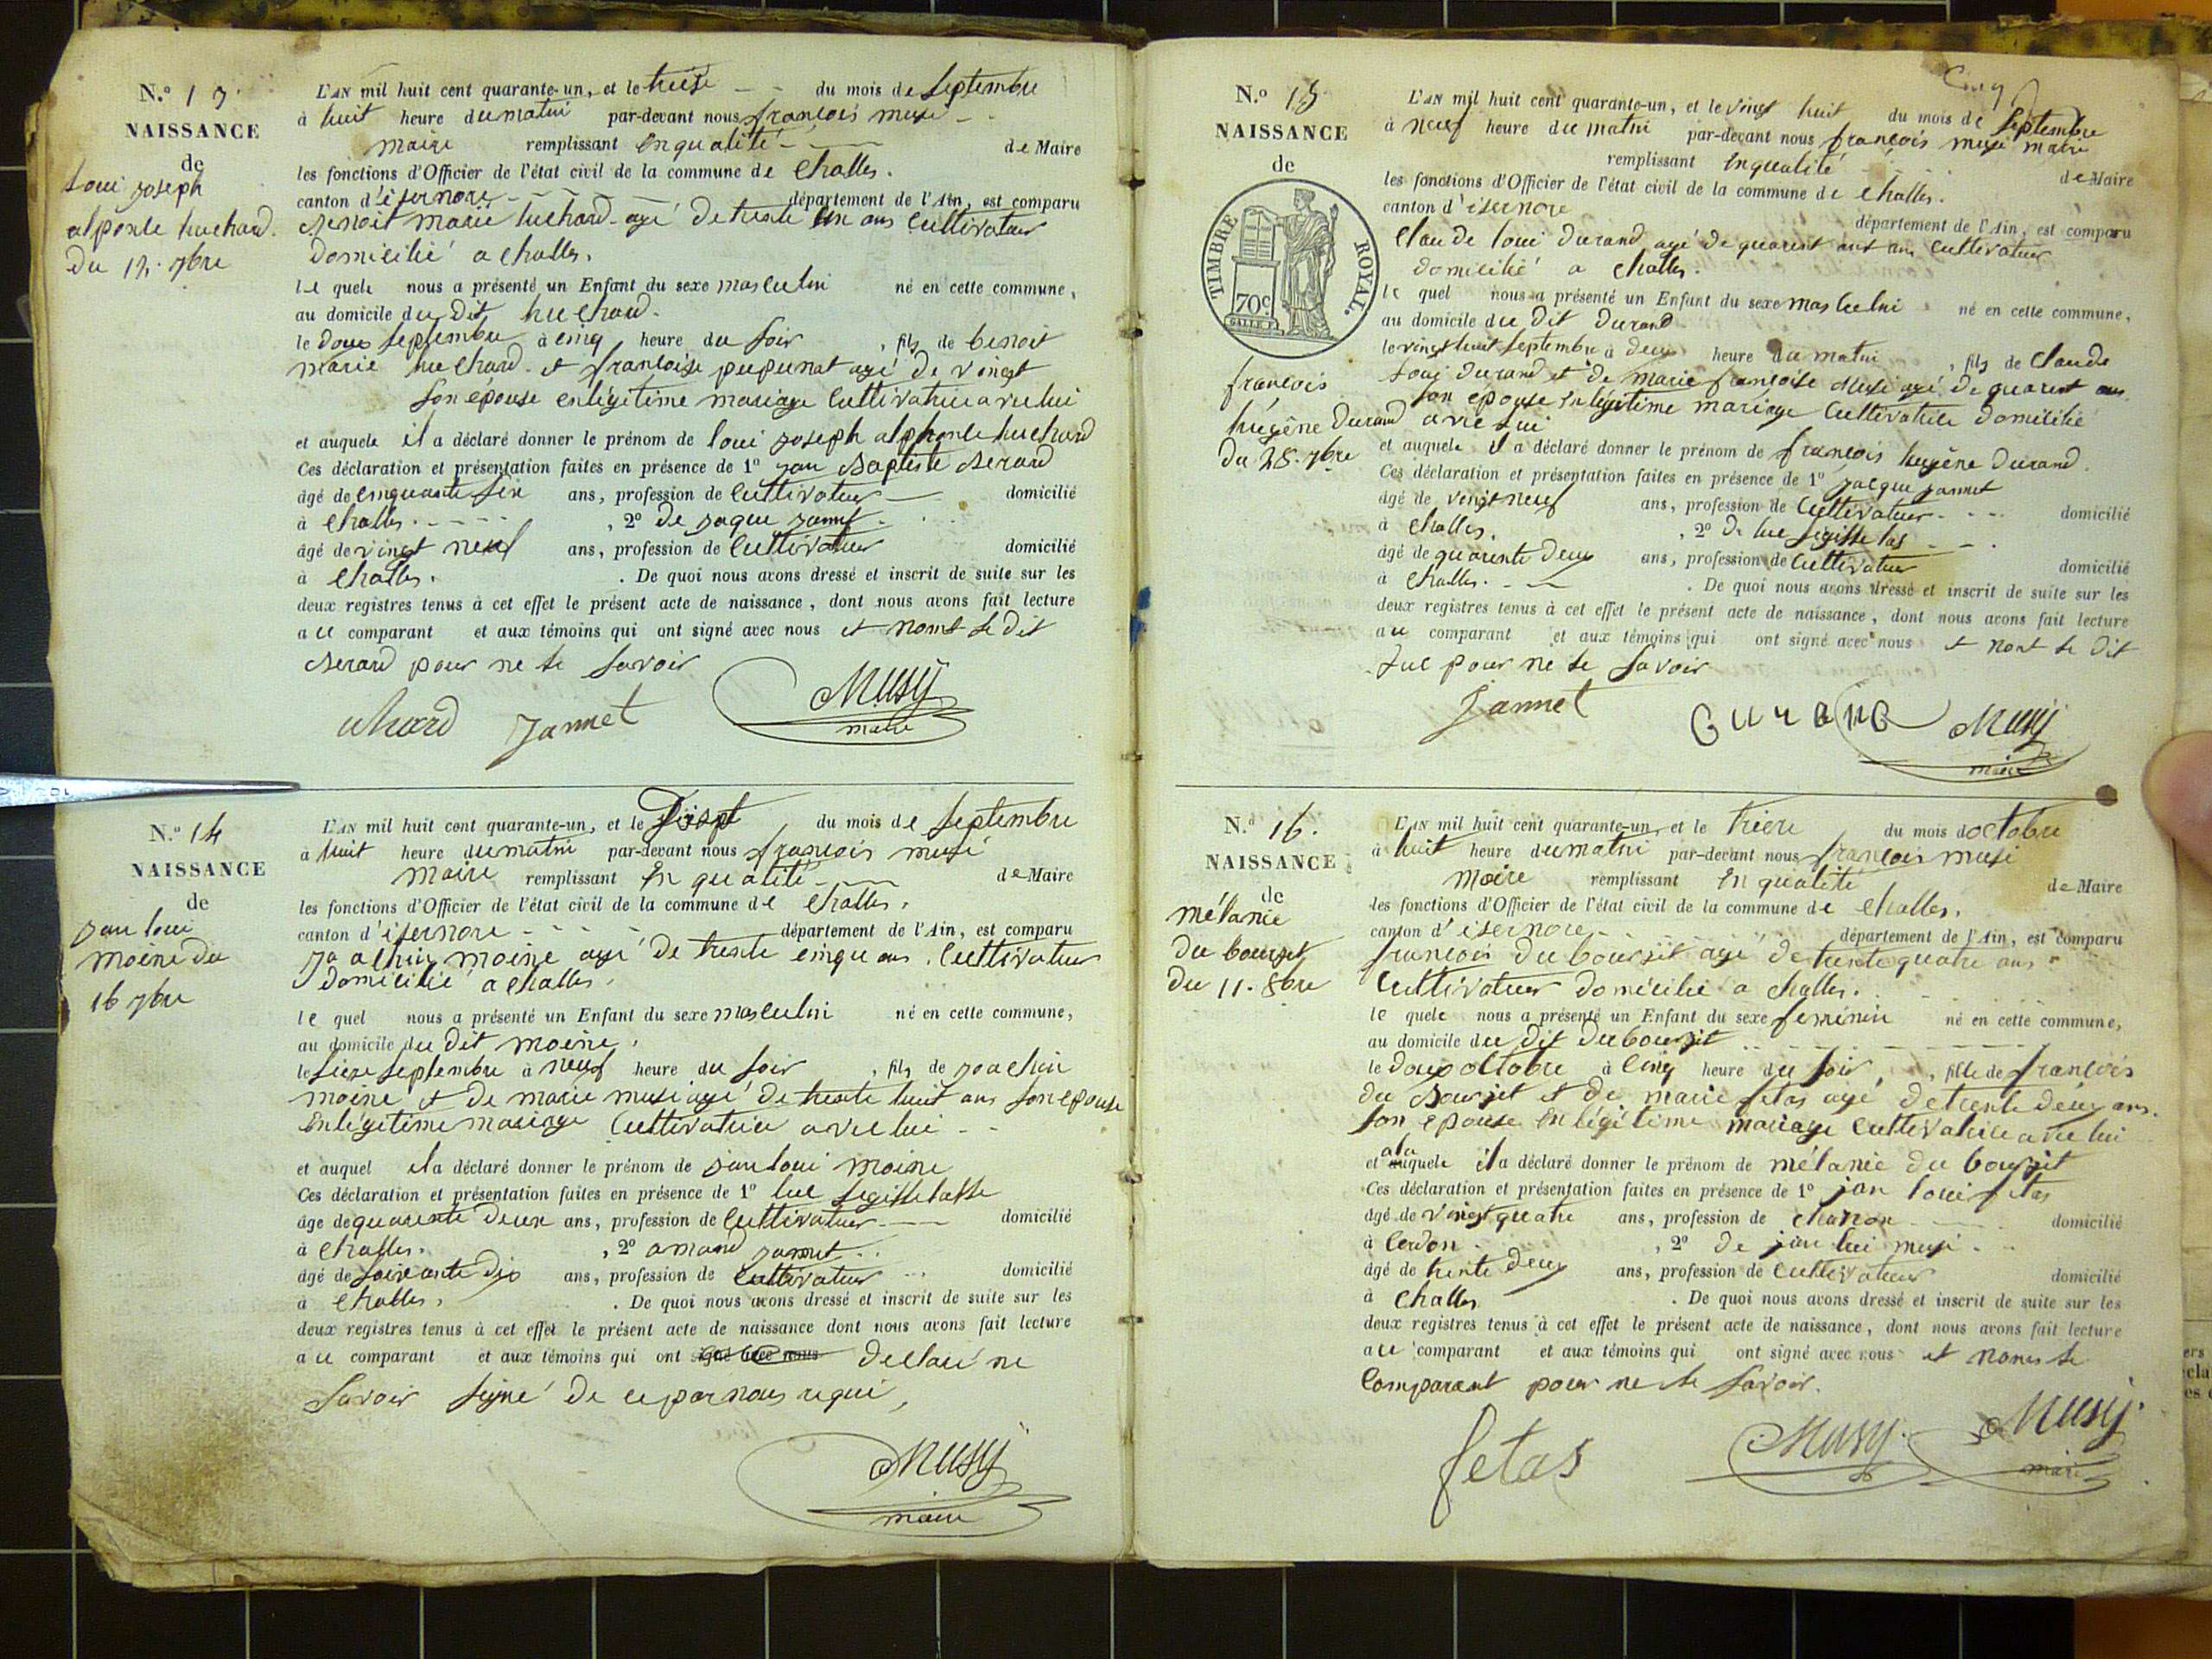 N.º 13
NAISSANCE
de
Loui joseph
alponse huchard.
Du 12. 7bre
L'AN mil huit cent quarante-un, et le treise du mois de Septembre
à huit heure du matin par-devant nous françois musi
maire remplissant en qualité de Maire
les fonctions d'Officier de l'état civil de la commune de Challes.
canton d'isernore département de l'Ain, est comparu
Benoit marie huchard agé de trente un ans Cultivateur
domicilié a challes.
le quele nous a présenté un Enfant du sexe masculin né en cette commune,
au domicile du dit huchard.
le douse septembre à cinq heure du soir, fils de benoit
marie huchard et françoise pupunat agé de vingt
son épouse en légitime mariage Cultivatrice avec lui
et auquele il a déclaré donner le prénom de loui joseph alphonse huchard
Ces déclaration et présentation faites en présence de 1º jan Baptiste Berard
âgé de cinquante six ans, profession de Cultivateur domicilié
à Challes. , 2º de jaque jannet
âgé de vingt neuf ans, profession de Cultivateur domicilié
à Challes. . De quoi nous avons dressé et inscrit de suite sur les
deux registres tenus à cet effet le présent acte de naissance, dont nous avons fait lecture
au comparant et aux témoins qui ont signé avec nous et nont le dit
Berard pour ne le savoir
uchard Jannet Musy
maire
N.º 14
NAISSANCE
de
jan loui
moine du
16 7bre
L'AN mil huit cent quarante-un, et le du mois de Septembre
à huit heure du matin par-devant nous françois musi
maire remplissant en qualité de Maire
les fonctions d'Officier de l'état civil de la commune de Challes.
canton d'isernore département de l'Ain, est comparu
joachin moine agé de trente cinque ans. Cultivateur
domicilié a challes.
le quel nous a présenté un Enfant du sexe masculin né en cette commune,
au domicile du dit moine.
le seize septembre à neuf heure du soir, fils de joachin
moine et de marie musi agé de trente huit ans son epouse
en légitime mariage Cultivatrice avec lui
et auquel il a déclaré donner le prénom de jan loui moine
Ces déclaration et présentation faites en présence de 1º luc
âgé de quarente deux ans, profession de Cultivateur domicilié
à Challes. , 2º amand jannet
âgé de soixante dix ans, profession de Cultivateur domicilié
à Challes. . De quoi nous avons dressé et inscrit de suite sur les
deux registres tenus à cet effet le présent acte de naissance dont nous avons fait lecture
au comparant et aux témoins qui ont signé avec nous declaré ne
savoir signé de ce par nous requi,
Musy
maire
Cinq
N.º 15
NAISSANCE
de
TIMBRE ROYAL.
70c
françois
hugêne Durand
du 28. 7bre
L'AN mil huit cent quarante-un, et le vingt huit du mois de Septembre
à neuf heure du matin par-devant nous françois musi maire
remplissant en qualité de Maire
les fonctions d'Officier de l'état civil de la commune de Challes.
canton d'isernore département de l'Ain, est comparu
Claude loui Durand agé de quarent ans Cultivateur
domicilié a challes.
le quel nous a présenté un Enfant du sexe masculin né en cette commune,
au domicile du dit Durand
le vingt huit septembre à deux heure du matin, fils de Claude
loui durand et de marie françoise Musi agé de quarent ans
son epouse en légitime mariage Cultivatrice domicilié
avec lui
et auquele il a déclaré donner le prénom de françois hugêne Durand
Ces déclaration et présentation faites en présence de 1º jacque jannet
âgé de vingt neuf ans, profession de Cultivateur domicilié
à Challes. , 2º de luc
âgé de quarente deux ans, profession de Cultivateur domicilié
à Challes. . De quoi nous avons dressé et inscrit de suite sur les
deux registres tenus à cet effet le présent acte de naissance, dont nous avons fait lecture
au comparant et aux témoins qui ont signé avec nous et nont le dit
Luc pour ne le savoir
Jannet Durand Musy
maire
N.º 16.
NAISSANCE
de
mélanie
du bourjet
du 11. 8bre
L'AN mil huit cent quarante-un, et le treize du mois doctobre
à huit heure du matin par-devant nous françois musi
maire remplissant en qualité de Maire
les fonctions d'Officier de l'état civil de la commune de Challes.
canton d'isernore département de l'Ain, est comparu
françois du bourjet agé de trente quatre ans
Cultivateur domicilié a challes.
le quele nous a présenté un Enfant du sexe feminin né en cette commune,
au domicile du dit du bourjet
le douze octobre à cinq heure du soir, fille de françois
du Bourjet et de marie fetas agé de trente deux ans.
son epouse en légitime mariage Cultivatrice avec lui
et a la quele il a déclaré donner le prénom de mélanie du bourjet
Ces déclaration et présentation faites en présence de 1º jan loui fetas
âgé de vingt quatre ans, profession de charron domicilié
à Cerdon , 2º de jan lui musi
âgé de trente deux ans, profession de Cultivateur domicilié
à Challes . De quoi nous avons dressé et inscrit de suite sur les
deux registres tenus à cet effet le présent acte de naissance, dont nous avons fait lecture
au comparant et aux témoins qui ont signé avec nous et nont le
Comparant pour ne le savoir.
fetas Musy Musy
maire